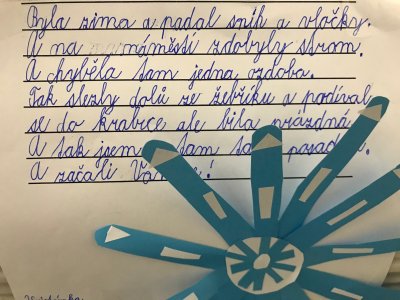 Byla zima a padal sníh a vločky.
A na náměstí zdobyly strom.
A chyběla tam jedna ozdoba.
Tak slezly dolů ze žebříku a podíval
se do krabice ale bila prázdná
A tak jsem tam posadil.
A začali Vánoce!